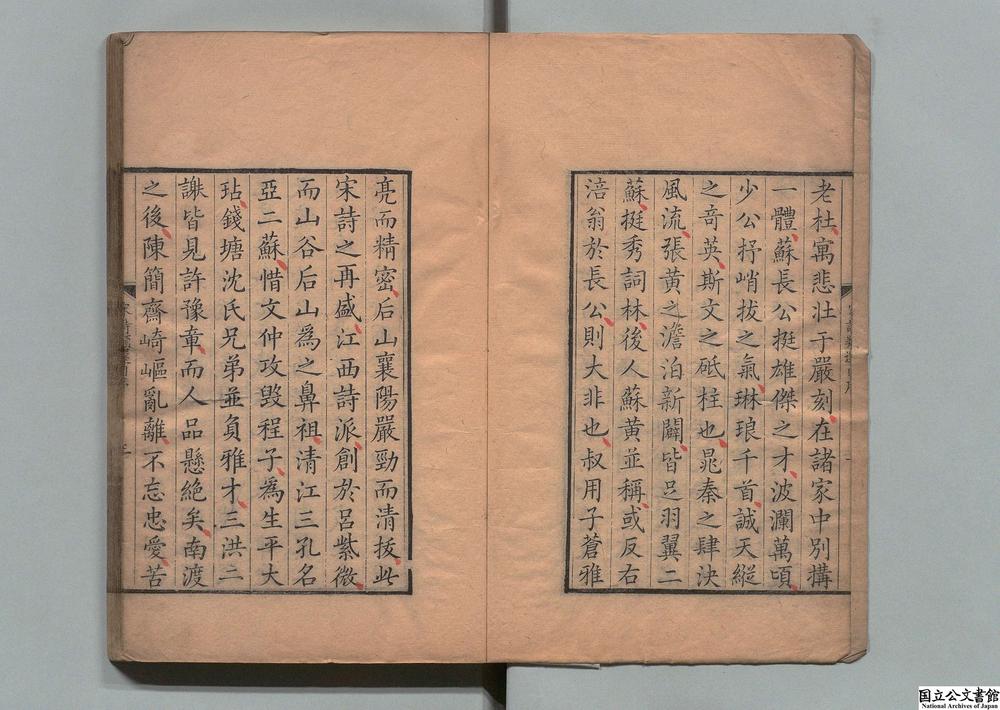 老杜寓悲壯于嚴刻在諸家中別搆
一體蘇長公挺雄傑之才波瀾萬頃
少公抒峭拔之氣琳琅千首誠天縱
之奇英斯文之砥柱也晁秦之肆決
風流張黃之澹泊新闢皆足羽翼二
蘇挺秀詞林後人蘇黃並稱或反右
涪翁於長公則大非也叔用子蒼雅
亮而精密后山襄陽嚴勁而清拔此
宋詩之再盛江西詩派創於呂紫微
而山谷后山為之鼻祖清江三孔名
亞二蘇惜文仲攻毀程子為生平大
玷錢塘沈氏兄弟並負雅才三洪二
謝皆見許豫章而人品懸絕矣南渡
之後陳簡齋崎嶇亂離不忘忠愛苦
国立公文書館
National Archives of Japan